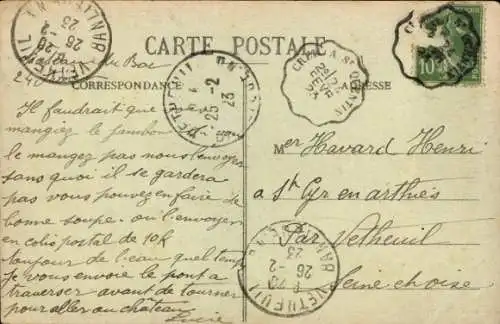 CARTE POSTALE
CORRESPONDANCE
ADRESSE
du Bac
Il faudrait que
mangiez le jambon si vous
le mangez pas nous l'envoyer
sans quoi il se gardera
pas vous pouvez en faire de
bonne soupe. ou l'envoyer
en colis postal de 10k
toujour de l'eau quel temps
Je vous envoie le pont a
traverser avant de tourner
pour aller au château
Lucie
Mer Havard Henri
a St Cyr en arthies
Par Vetheuil
Seine et oise
VETHEUIL
26 -2
23
25 -2
23
CREIL A St QUENTIN
10
VETHEUIL
26 -2
23